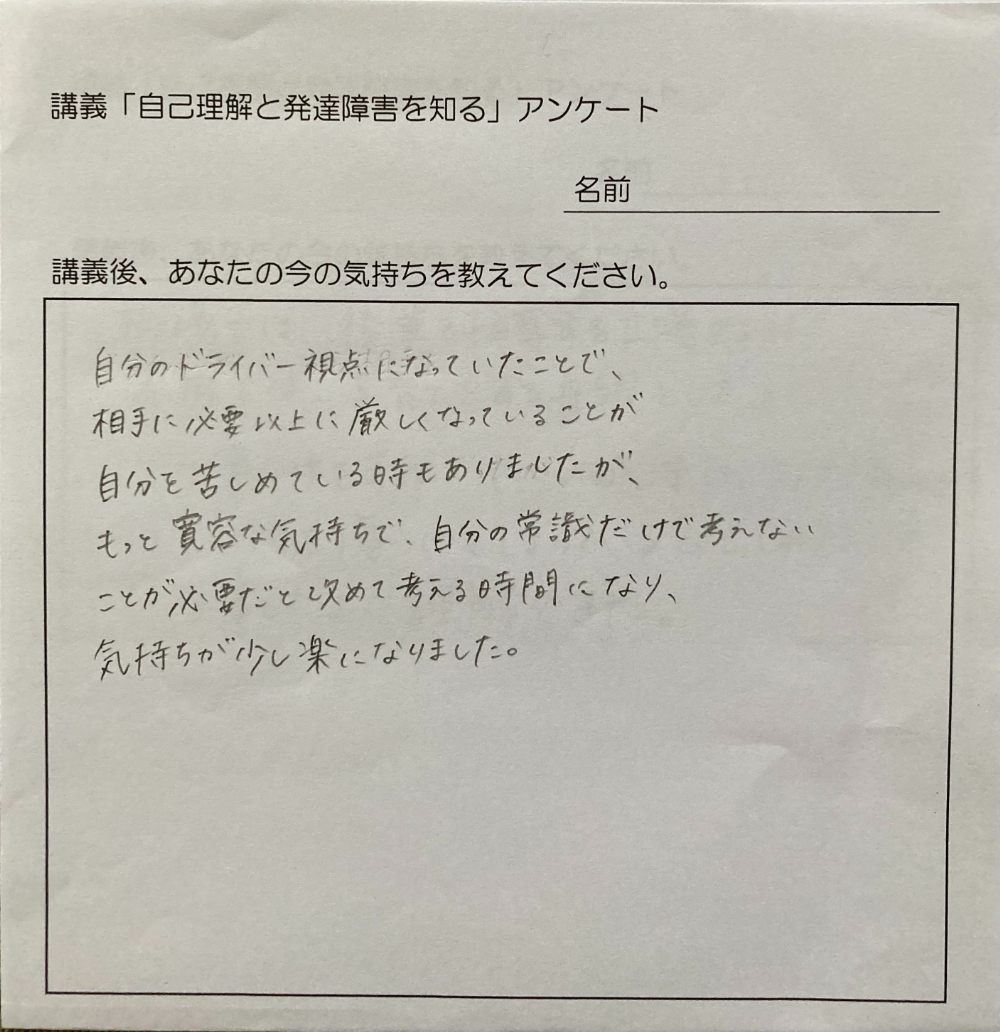 講義「自己理解と発達障害を知る」アンケート
名前
講義後、あなたの今の気持ちを教えてください。
自分のドライバー視点になっていたことで、
相手に必要以上に厳しくなっていることが
自分を苦しめている時もありましたが、
もっと寛容な気持ちで、自分の常識だけで考えない
ことが必要だと改めて考える時間になり、
気持ちが少し楽になりました。